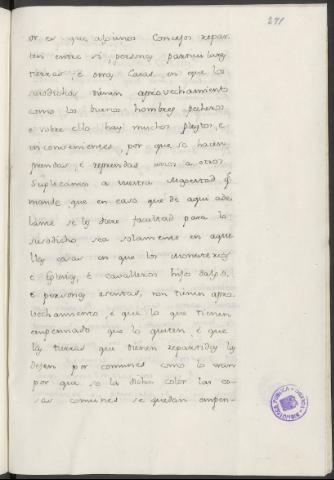 271
or es que algunos Concejos repar-
ten entre si, personas particulares
tierras, é otras Casas en que los
susodichos tienen aprovechamiento
como los buenos hombres pecheros
e sobre ello hay muchos pleytos, e
inconvenientes, por que se hacen
prendas, é reprendas unos a otros
Suplicamos a vuestra Magestad q̃
mande que en caso que de aqui ade
lante se les diere facultad para lo
susodicho sea solamente en aque
llas cosas en que los monesterios
e Iglesias, é cavalleros hijos dalgo,
é personas esentas, non tienen apro
vechamiento, é que lo que tienen
empennado que lo quiten, é que
las tierras que tienen repartidas las
dejen por comunes como lo eran
por que so la dicha color las co-
sas comunes se quedan empen-
BIBLIOTECA PUBLICA